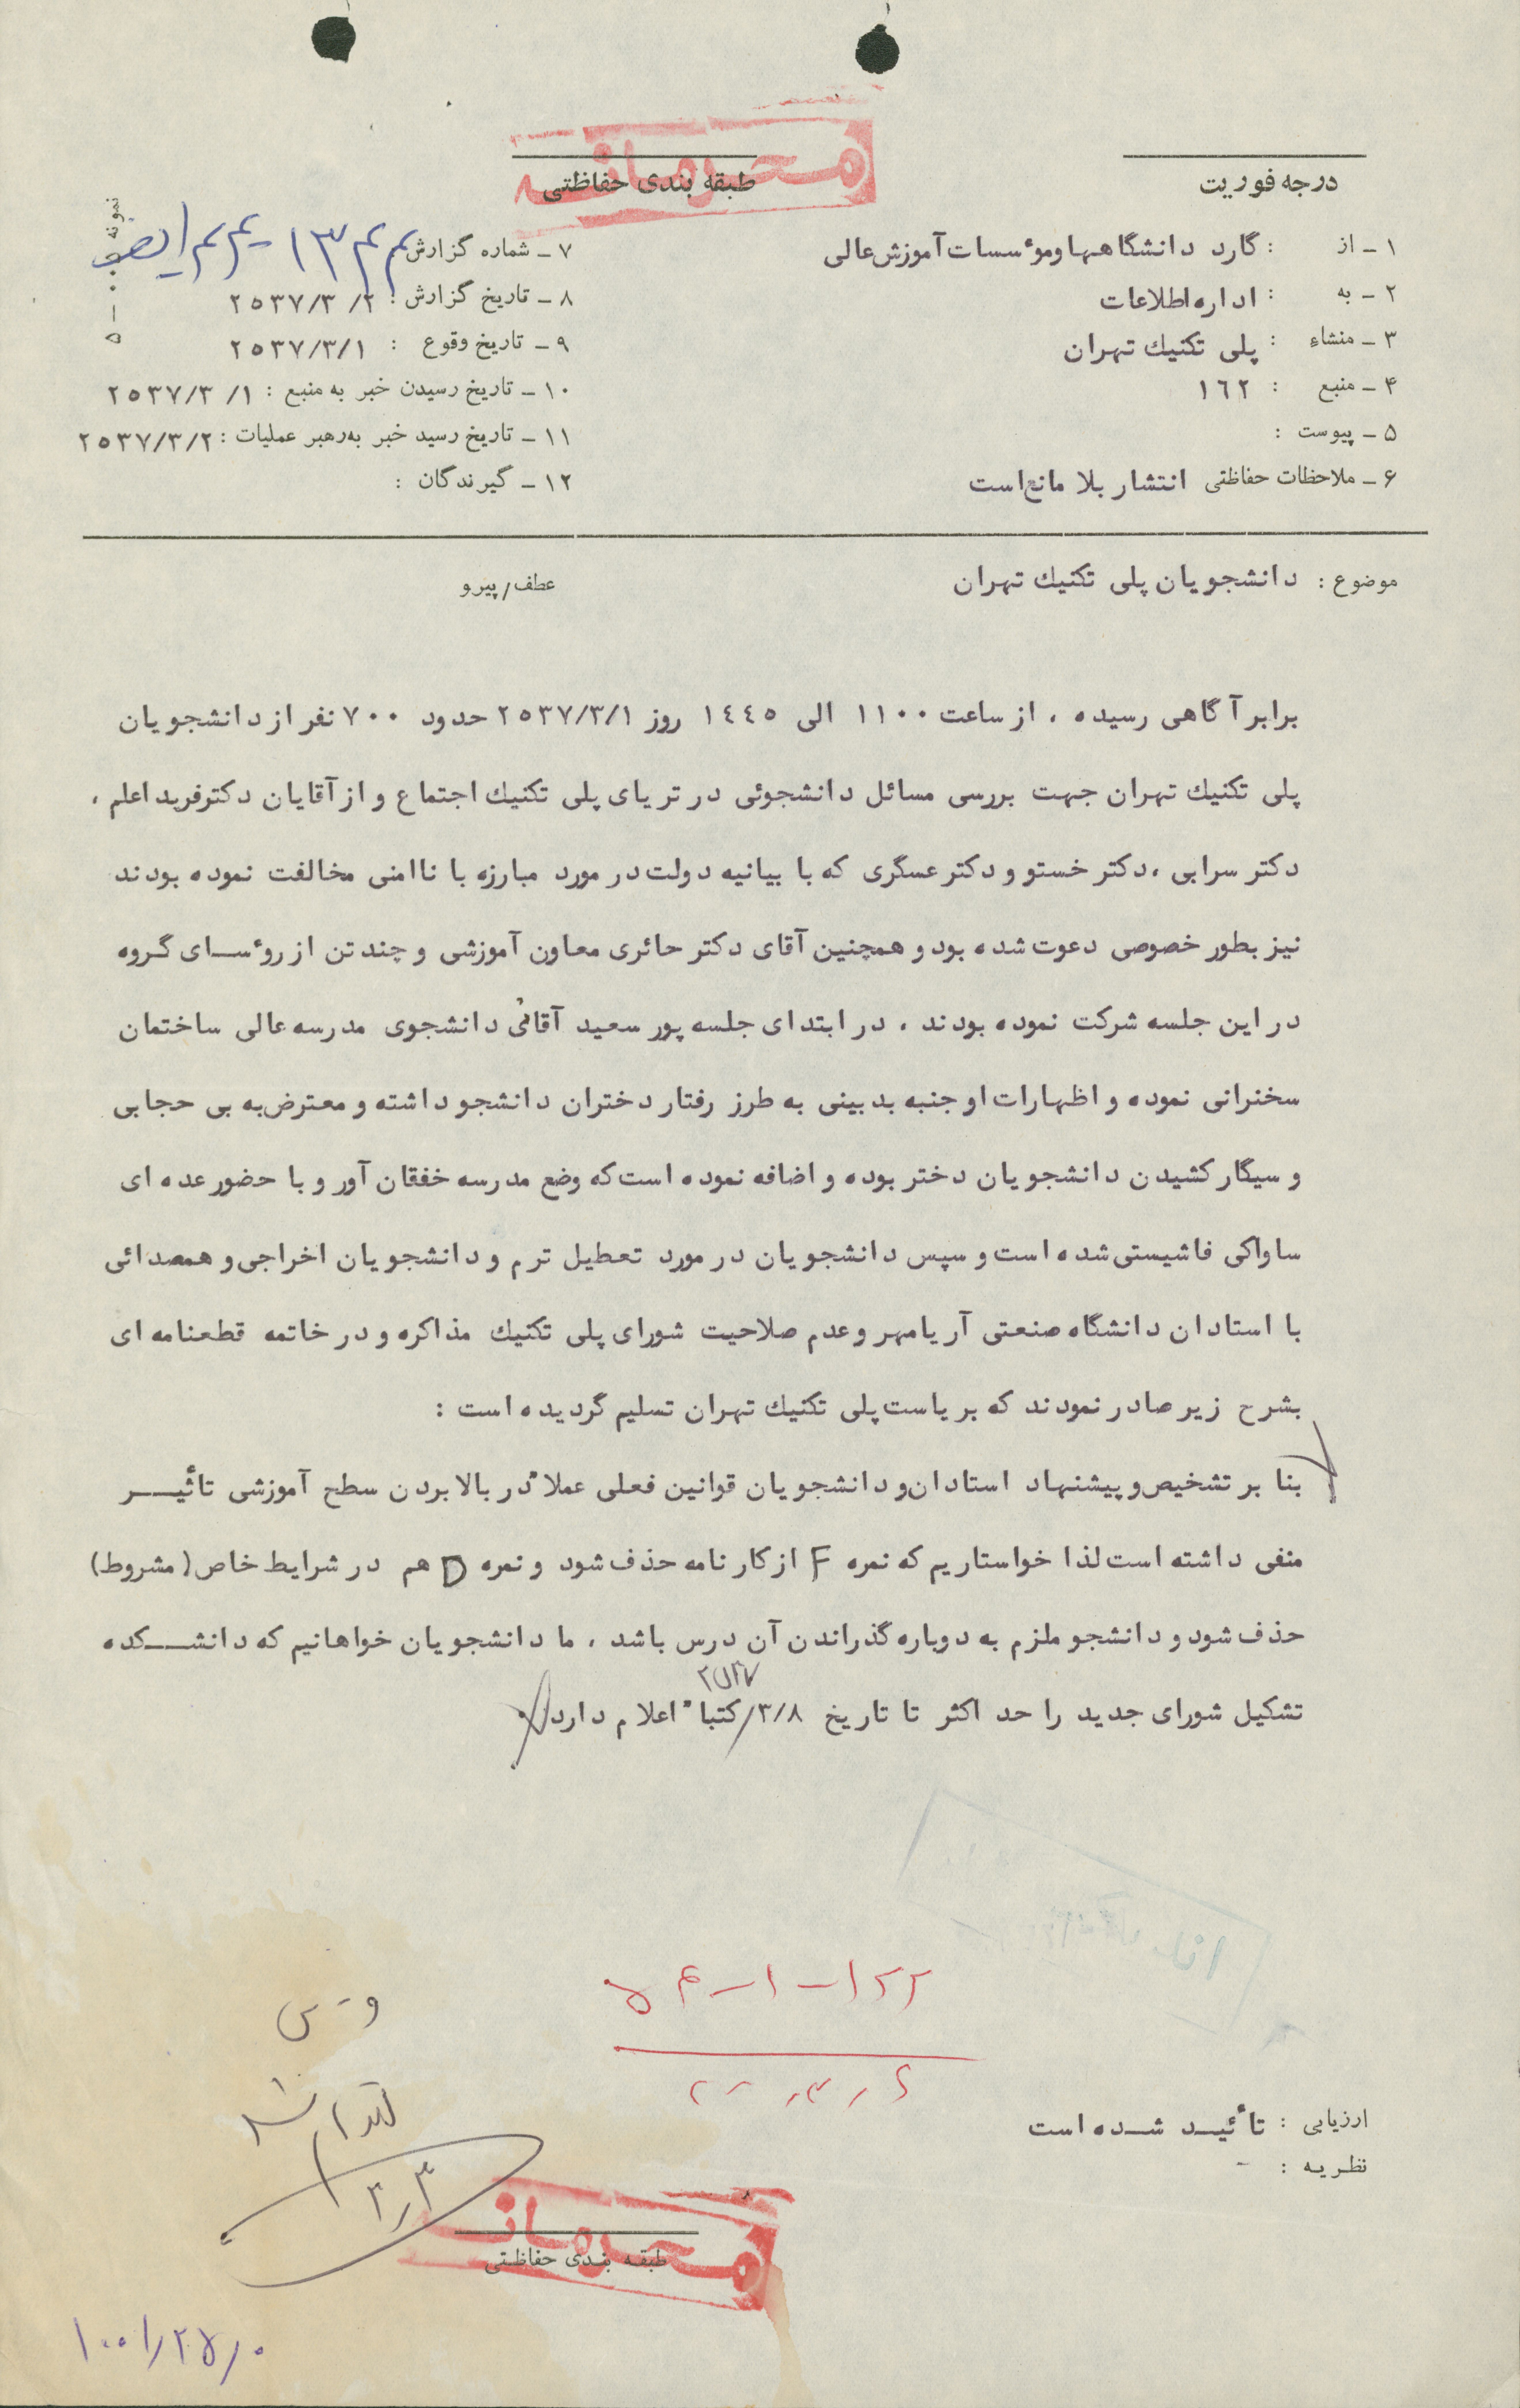 محرمانه
درجه فوریت
طبقه بندی حفاظتی
نمونه ۰۰-۵
۱ ـ از : گارد دانشگاهها وموٴسسات آموزش عالی
۲ ـ به : اداره اطلاعات
۳ ـ منشاء : پلی تکنیك تهران
۴ ـ منبع : ۱٦۲
۵ ـ پیوست :
۶ ـ ملاحظات حفاظتی انتشار بلا مانع است
۷ ـ شماره گزارش
۸ ـ تاریخ گزارش : ۲/ ۲٥۳۷/۳
۹ ـ تاریخ وقوع : ۲٥۳۷/۳/۱
۱۰ ـ تاریخ رسیدن خبر به منبع : ۱/ ۲٥۳۷/۳
۱۱ ـ تاریخ رسید خبر به رهبر عملیات : ۲٥۳۷/۳/۲
۱۲ ـ گیرندگان :
موضوع : دانشجویان پلی تکنیك تهران
عطف/پیرو
برابر آگاهی رسیده ، از ساعت ۱۱۰۰ الی ۱٤٤٥ روز ۲٥۳۷/۳/۱ حدود ۷۰۰ نفر از دانشجویان
پلی تکنیك تهران جهت بررسی مسائل دانشجوئی در تریای پلی تکنیك اجتماع و از آقایان دکتر فرید اعلم ،
دکتر سرابی ، دکتر خستو و دکتر عسگری که با بیانیه دولت در مورد مبارزه با ناامنی مخالفت نموده بودند
نیز بطور خصوصی دعوت شده بود و همچنین آقای دکتر حائری معاون آموزشی و چند تن از روٴسای گروه
در این جلسه شرکت نموده بودند ، در ابتدای جلسه پور سعید آقائی دانشجوی مدرسه عالی ساختمان
سخنرانی نموده و اظهارات او جنبه بدبینی به طرز رفتار دختران دانشجو داشته و معترض به بی حجابی
و سیگار کشیدن دانشجویان دختر بوده و اضافه نموده است که وضع مدرسه خفقان آور و با حضور عده ای
ساواکی فاشیستی شده است و سپس دانشجویان در مورد تعطیل ترم و دانشجویان اخراجی و همصدائی
با استادان دانشگاه صنعتی آریامهر و عدم صلاحیت شورای پلی تکنیك مذاکره و در خاتمه قطعنامه ای
بشرح زیر صادر نمودند که بریاست پلی تکنیك تهران تسلیم گردیده است :
بنا بر تشخیص و پیشنهاد استادان و دانشجویان قوانین فعلی عملاً در بالا بردن سطح آموزشی تأثیر
منفی داشته است لذا خواستاریم که نمره F از کار نامه حذف شود و نمره D هم در شرایط خاص (مشروط)
حذف شود و دانشجو ملزم به دوباره گذراندن آن درس باشد ، ما دانشجویان خواهانیم که دانشکده
تشکیل شورای جدید را حد اکثر تا تاریخ ۳/۸/ ۲۵۳۷ کتباً اعلام دارد
۱۲۲-۱-۴۵
و-س
ارزیابی : تأئید شده است
نظریه : -
۳/۳
محرمانه
طبقه بندی حفاظتی